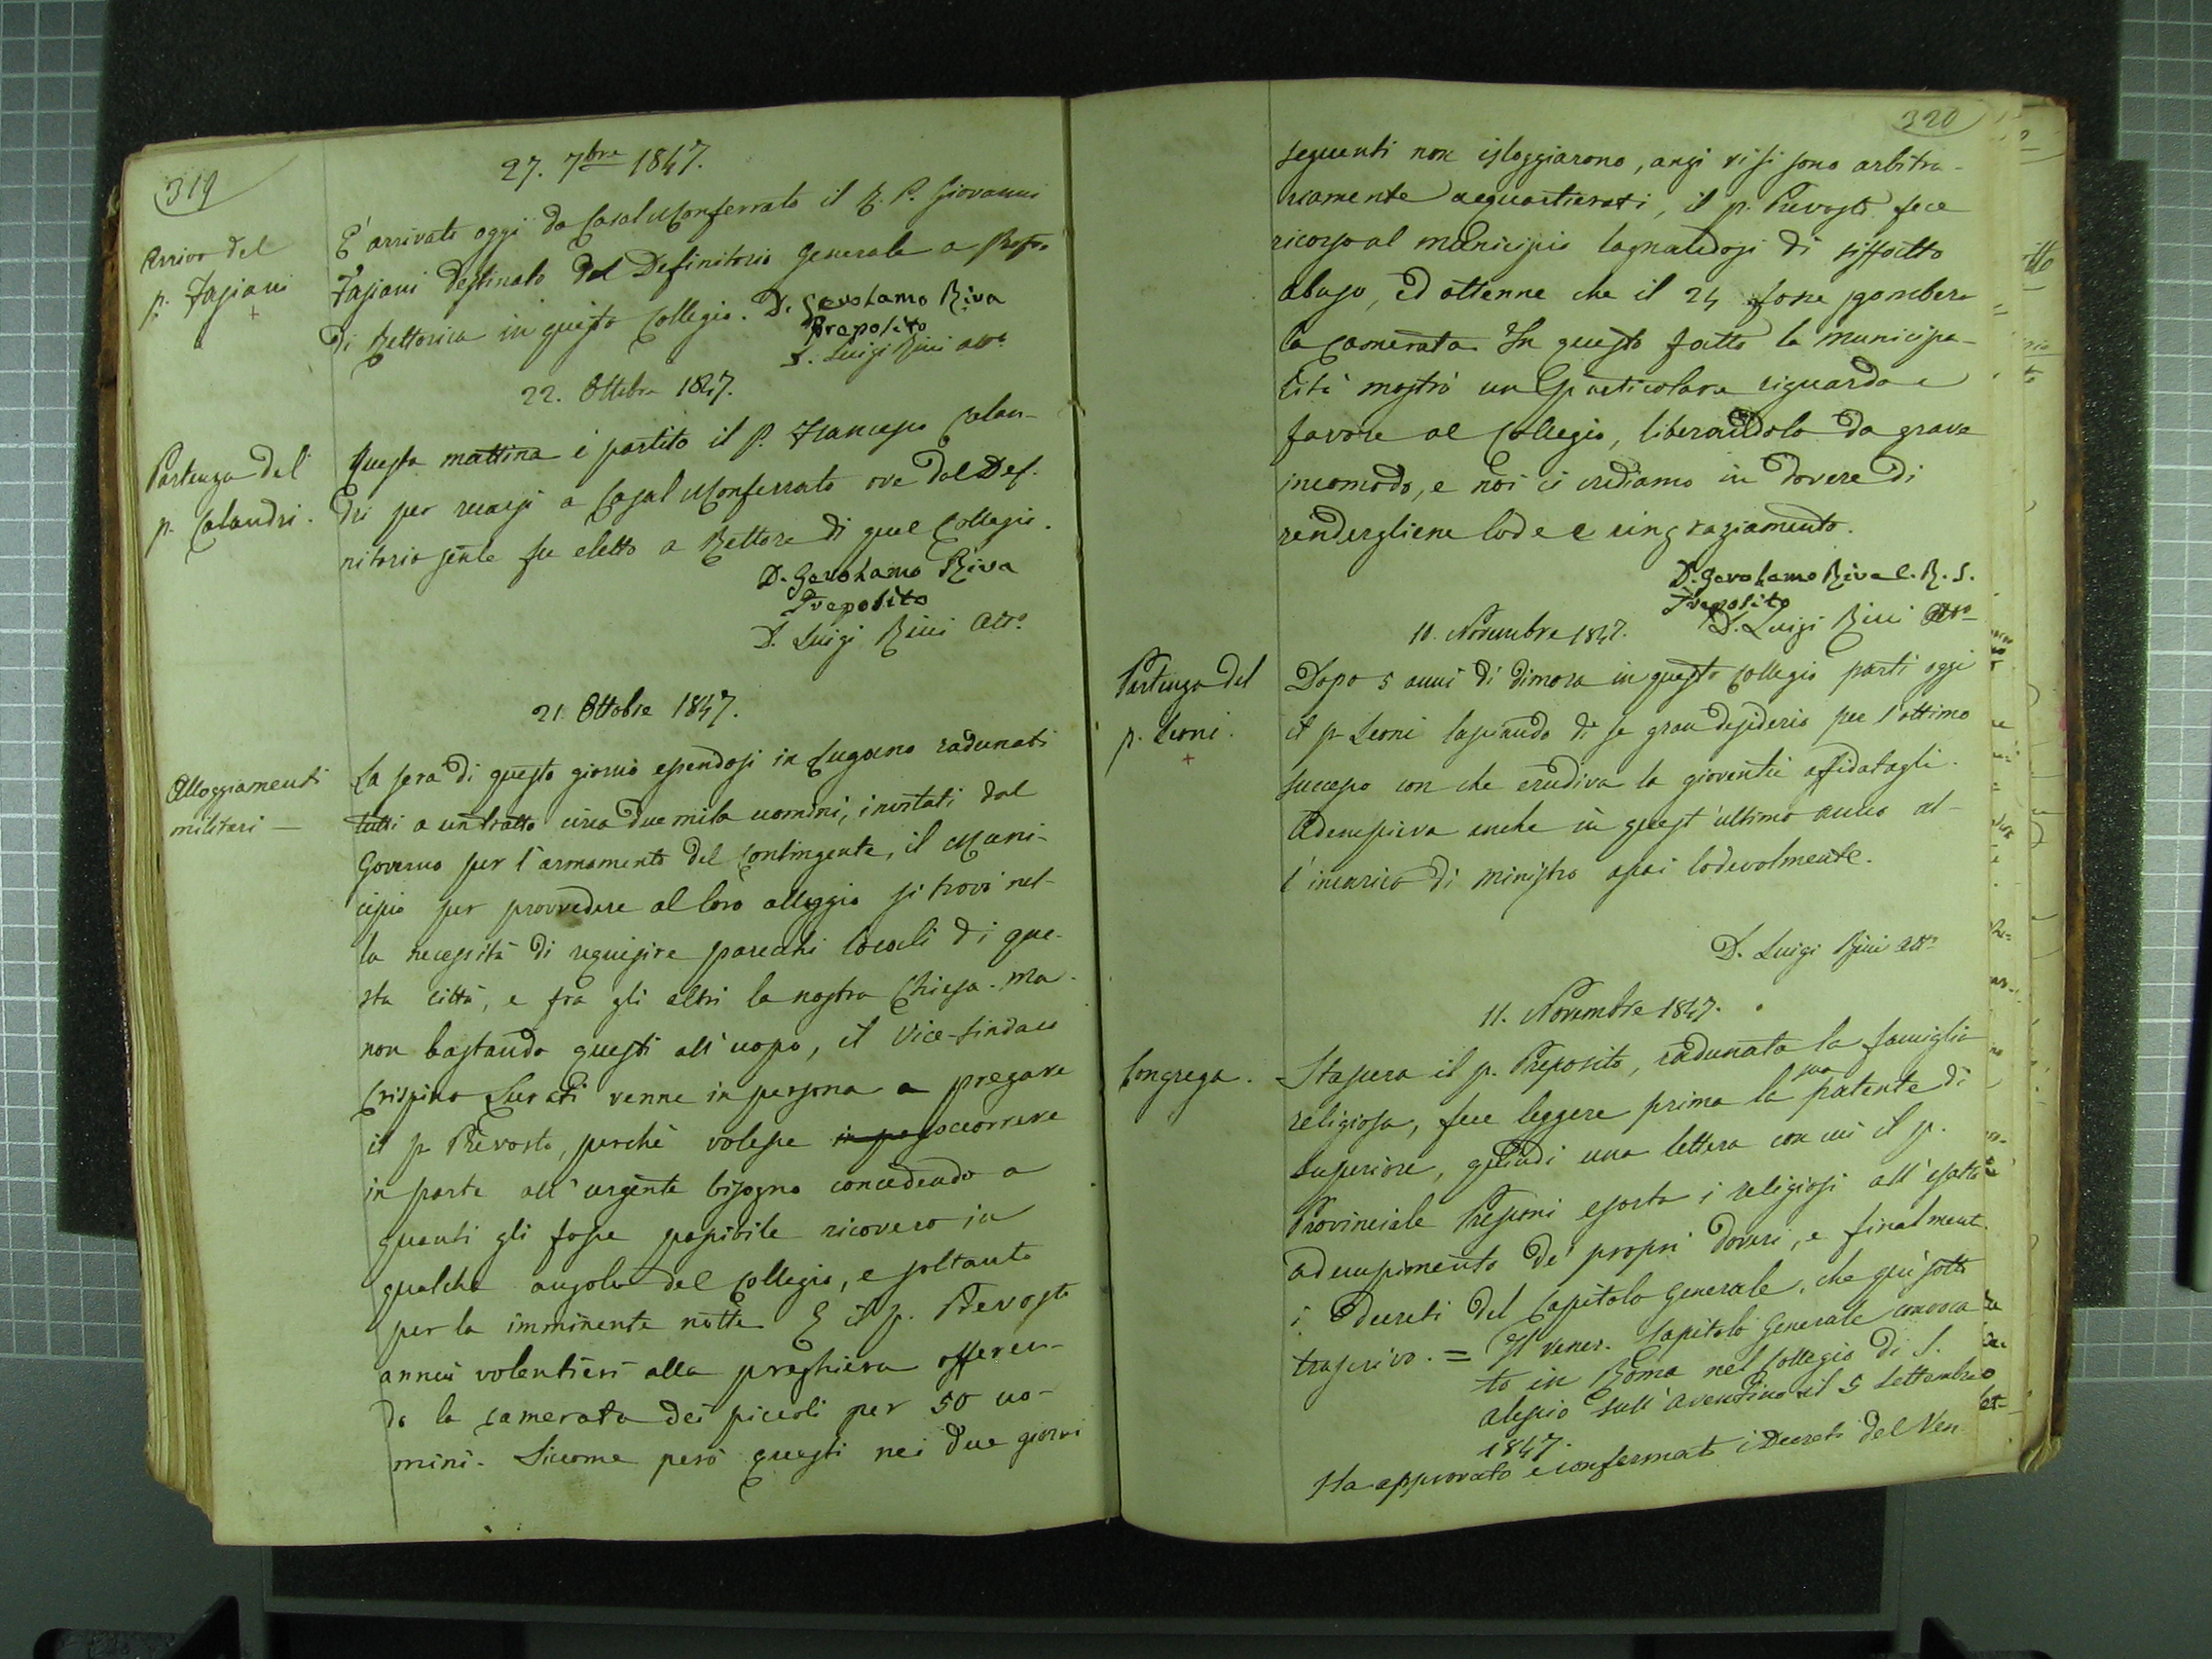 319
27. 7bre 1847.
Arrivo del
p. Fasiani
+
E' arrivato oggi da Casal Monferrato il R. P. Giovanni
Fasiani destinato dal Definitorio Generale a Profre
di Rettorica in questo Collegio. D. Gerolamo Riva
Preposito
D. Luigi Rini Atto.
22. Ottobre 1847.
Partenza del
p. Calandri.
Questa mattina è partito il P. Francesco Calan-
dri per recarsi a Casal Monferrato ove dal Def-
nitorio genle fu eletto a Rettore di quel Collegio.
D. Gerolamo Riva
Preposito
D. Luigi Rini Atto.
21. Ottobre 1847.
Alloggiamenti
militari —
La sera di questo giorno essendosi in Lugano radunati
tutti a un tratto circa due mila uomini, invitati dal
Governo per l'armamento del Contingente, il Muni-
cipio per provvedere al loro alloggio si trovò nel-
la necessità di requisire parecchi locali di que-
sta città, e fra gli altri la nostra Chiesa. Ma
non bastando questi all'uopo, il Vice-Sindaco
Crispino Lurati venne in persona a pregare
il p. Prevosto, perchè volesse in pe soccorrere
in parte all'urgente bisogno concedendo a
quanti gli fosse possibile ricovero in
qualche angolo del Collegio, e soltanto
per la imminente notte. E il p. Prevosto
annuì volentieri alla preghiera offeren-
do la camerata dei piccoli per 50 uo-
mini. Siccome però questi nei due giorni
320
seguenti non isloggiarono, anzi vi si sono arbitra-
riamente acquartierati, il p. Prevosto fece
ricorso al Municipio lagnandosi di siffatto
abuso, ed ottenne che il 24 fosse sgombera
la Camerata. In questo fatto la Municipa-
lità mostrò un particolare riguardo e
favore al Collegio, liberandolo da grave
incomodo, e noi ci crediamo in dovere di
rendergliene lode e ringraziamento.
D. Gerolamo Riva C. R. S.
Preposito
D. Luigi Rini Atto.
10. Novembre 1847.
Partenza del
p. Leoni.
+
Dopo 5 anni di dimora in questo Collegio partì oggi
il p. Leoni lasciando di se gran desiderio per l'ottimo
successo con che erudiva la gioventù affidatagli.
Adempieva anche in quest'ultimo anno al-
l'incarico di ministro assai lodevolmente.
D. Luigi Rini Atto.
11. Novembre 1847.
Congrega.
Stasera il p. Preposito, radunata la famiglia
religiosa, fece leggere prima la sua patente di
Superiore, quindi una lettera con cui il p.
Provinciale esorta i religiosi all'esatto
adempimento de' propri doveri, e finalmente
i Decreti del Capitolo Generale, che qui sotto
trascrivo. = Il vener. Capitolo Generale convoca
to in Roma nel Collegio di S.
Alessio sull'Aventino il 5 Settembre
1847.
Ha approvato e confermati i Decreti del Ven.